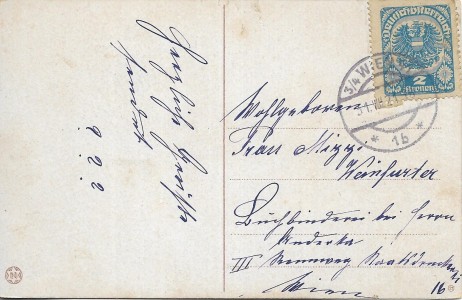 Herzliche Grüße
sendet
Deutschösterreich
2
Kronen
3/4 WIEN
1b
Wohlgeboren
Frau Mizzi
Weinfurter
Buchbinderei bei Herrn
Anderka
III Rennweg Staatsdruckerei
Wien 16